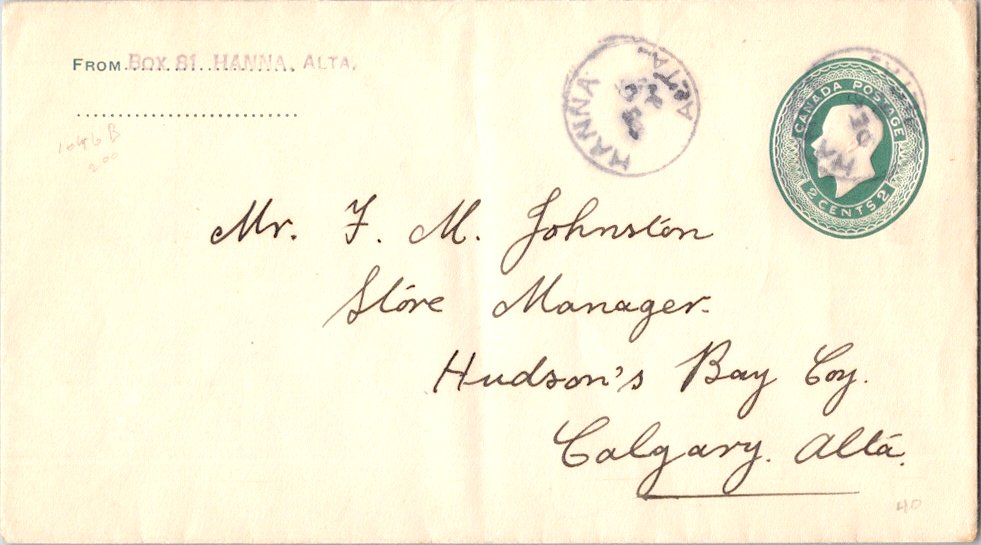 FROM BOX 81, HANNA, ALTA.
1046B
200
HANNA
ALTA
CANADA POSTAGE
2 CENTS 2
HA
DE
Mr. F. M. Johnston
Store Manager.
Hudson's Bay Coy.
Calgary. Alta.
40